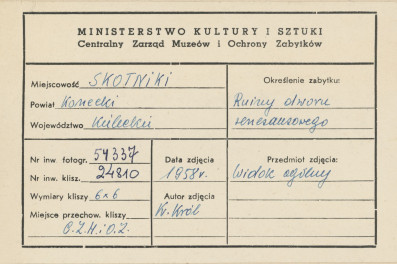 MINISTERSTWO KULTURY I SZTUKI
Centralny Zarząd Muzeów i Ochrony Zabytków
Miejscowość SKOTNIKI
Powiat Konecki
Województwo Kielecki
Określenie zabytku:
Ruiny dworu
renesansowego
Nr inw. fotogr. 54337
Nr inw. klisz. 24810
Wymiary kliszy 6x6
Miejsce przechow. kliszy
C.Z.M.i O.Z.
Data zdjęcia
1958r.
Autor zdjęcia
K. Król
Przedmiot zdjęcia:
Widok ogólny